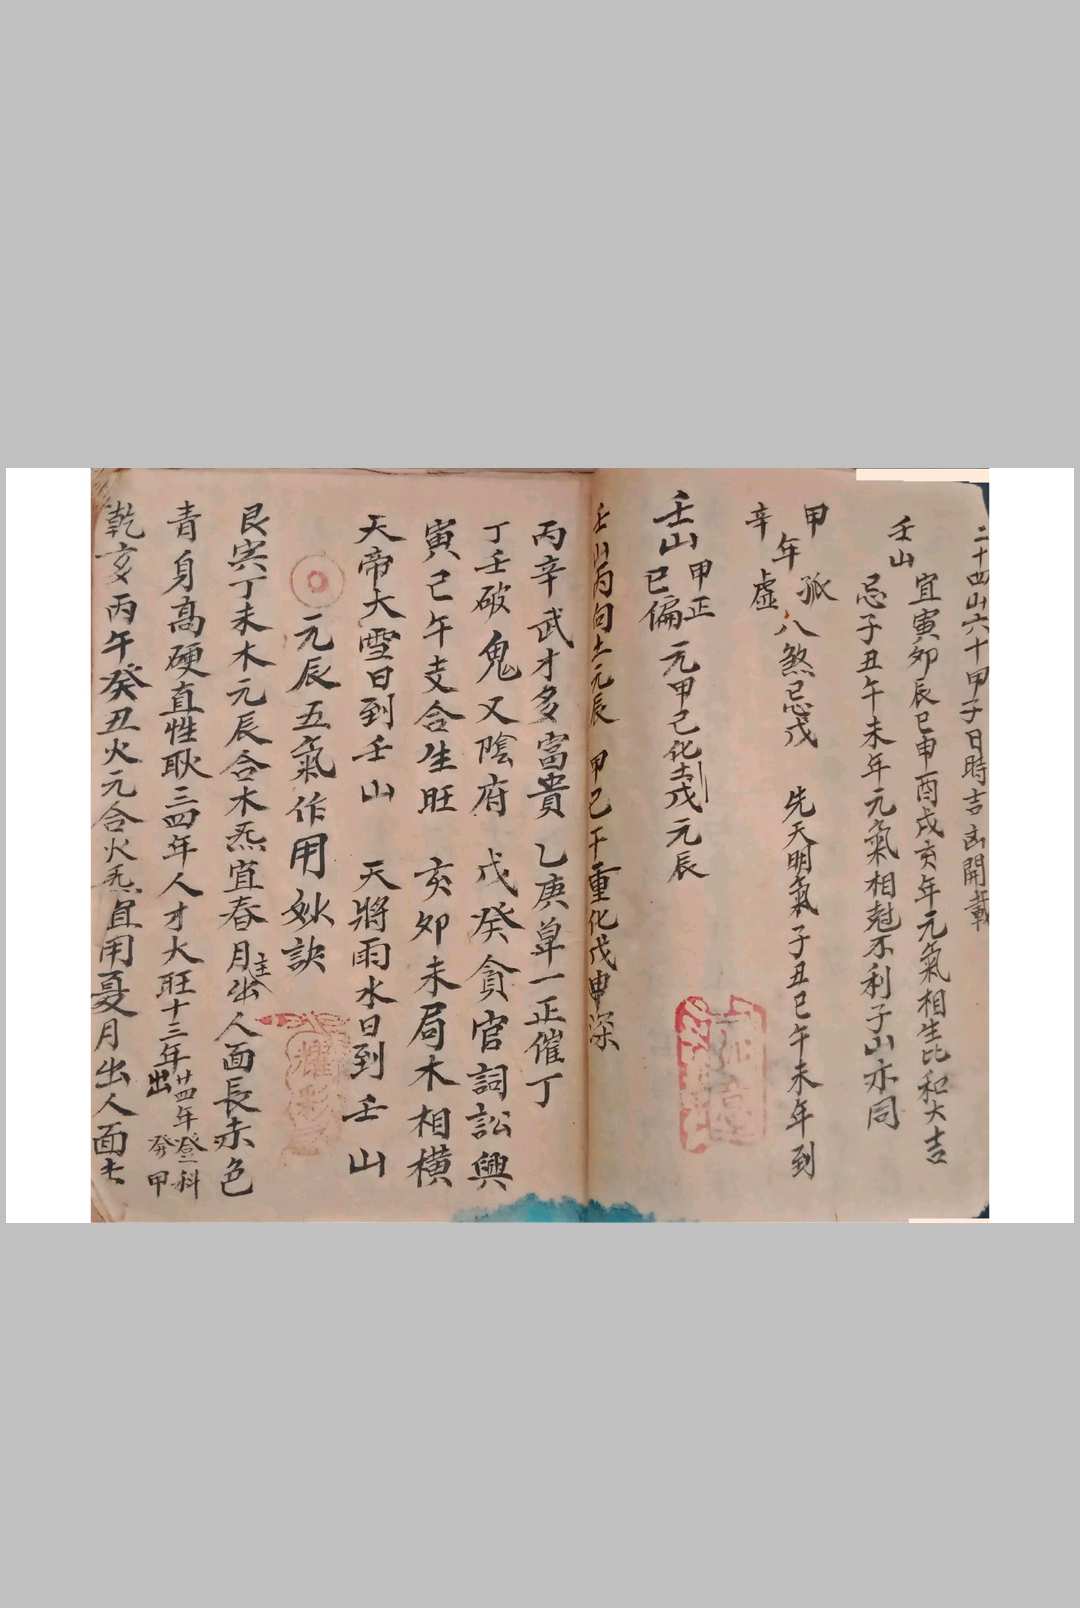 二十四山六十甲子日時吉凶開載
壬山
宜寅卯辰巳申酉戌亥年元氣相生比和大吉
忌子丑午未年元氣相尅不利子山亦同
甲
辛
年
孤
虛
八煞忌戊 先天明氣子丑巳午未年到
壬山
甲正
已偏
元甲己化土刋戊元辰
壬山丙向土元辰 甲己干重化戊申深
丙辛武才多富貴 乙庚単一正催丁
丁壬破鬼又陰府 戊癸貪官詞訟興
寅己午支合生旺 亥卯未局木相橫
天帝大雪日到壬山 天將雨水日到壬山
元辰五氣作用妙訣
艮寅丁未木元辰合木炁宜春月出人面長赤色
主
青身高硬直性耿三四年人才大旺十三年出
廿四年登科
發甲
乾亥丙午癸丑火元合火炁宜用夏月出人面
耀彩